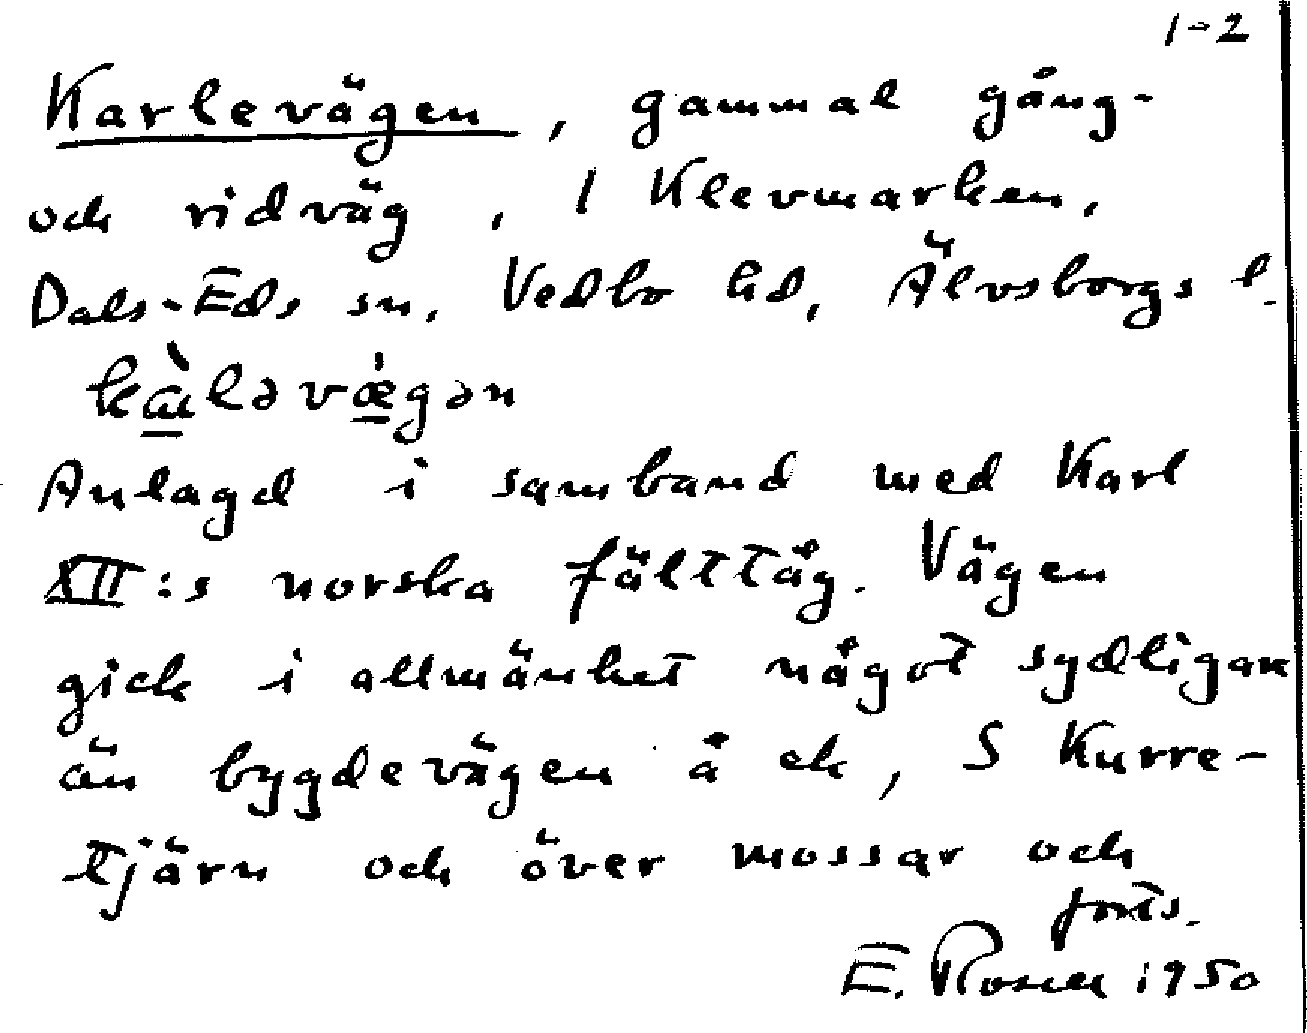 1-2
Karlevägen, gammal gång-
och ridväg, i Klevmarken,
Dals-Eds sn. Vedbo hd, Älvsborgs l.
kàləvǽgən
Anlagd i samband med Karl
XII:s norska fälttåg. Vägen
gick i allmänhet något sydligare
än bygdevägen å ek, S Kurre-
tjärn och över mossar och
forts.
E. Rosell 1950